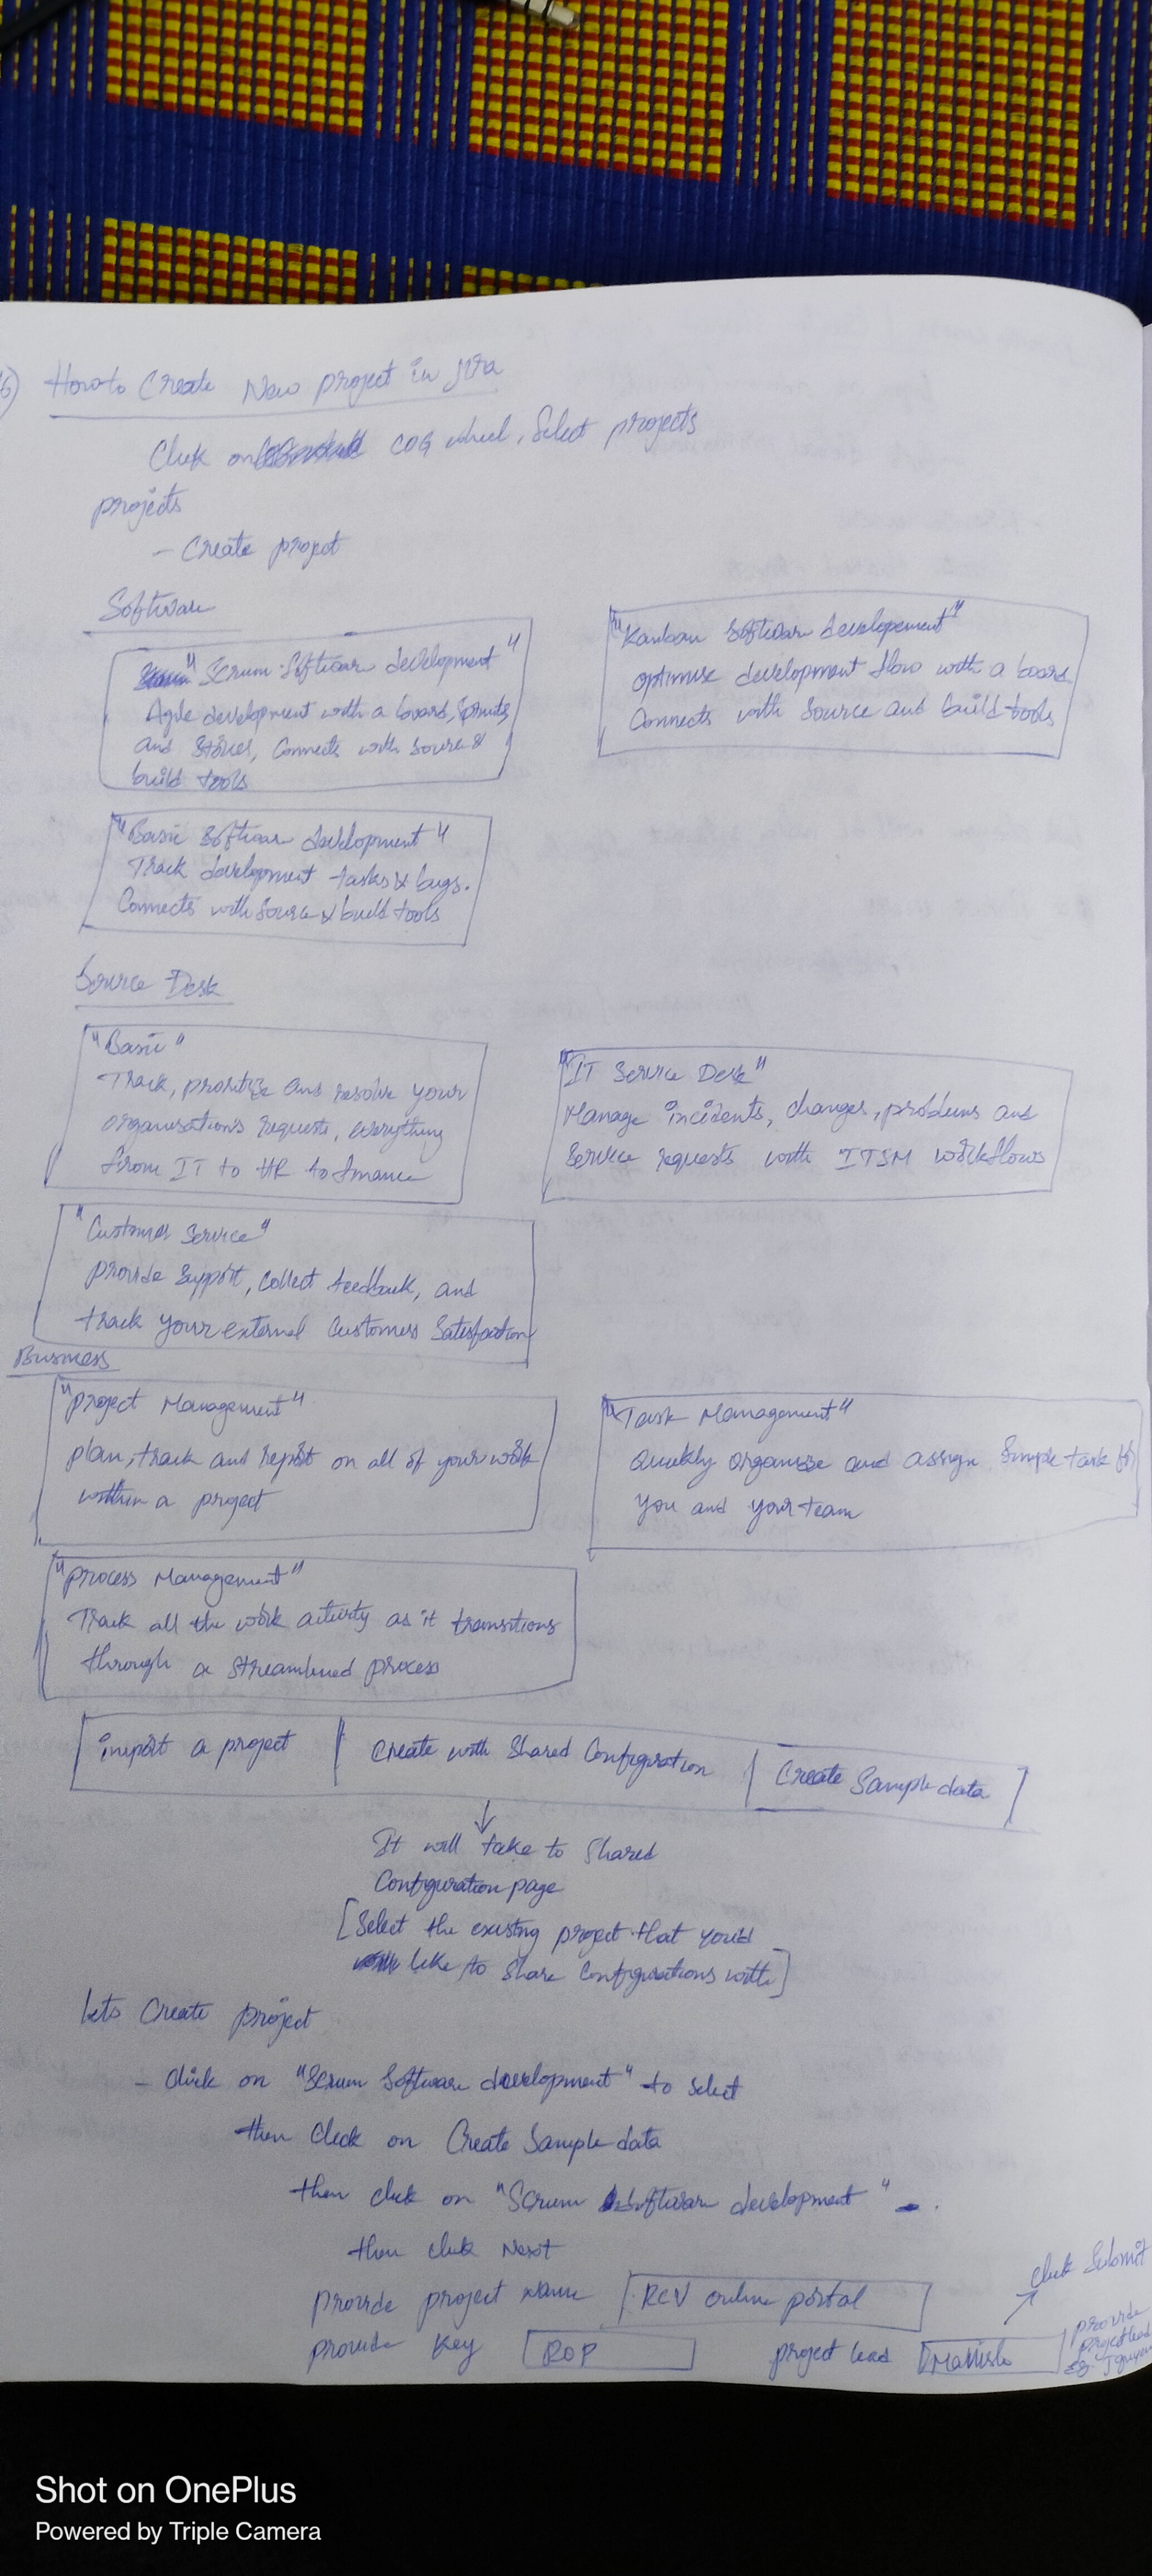 6) How to Create New project in Jira
Click on COG wheel, Select projects
projects
- Create project
Software
"Scrum Software development"
Agile development with a board, Sprints
and Stories, Connects with source &
build tools
"Kanban Software developement"
optimise development flow with a board
Connects with Source and build tools
"Basic Software development"
Track development tasks & bugs.
Connects with Source & build tools
Service Desk
"Basic"
Track, prioritize and resolve your
organisations requests, everything
from IT to HR to finance
"IT Service Desk"
Manage incidents, changes, problems and
Service requests with ITSM workflows
"Customer Service"
provide Support, collect feedback, and
track your external Customers Satisfaction
Business
"project Management"
plan, track and report on all of your work
within a project
"Task Management"
Quickly organise and assign Simple task for
you and your team
"process Management"
Track all the work activity as it transitions
through a streamlined process
import a project | Create with Shared Configuration | Create Sample data
It will take to Shared
Configuration page
[Select the existing project that you'd
like to share Configurations with]
lets Create project
- Click on "Scrum Software development" to select
then Click on Create Sample data
then click on "Scrum Software development".
then click Next
provide project Name RCV online portal
provide key ROP
project lead
Click Submit
provide
project lead
Shot on OnePlus
Powered by Triple Camera